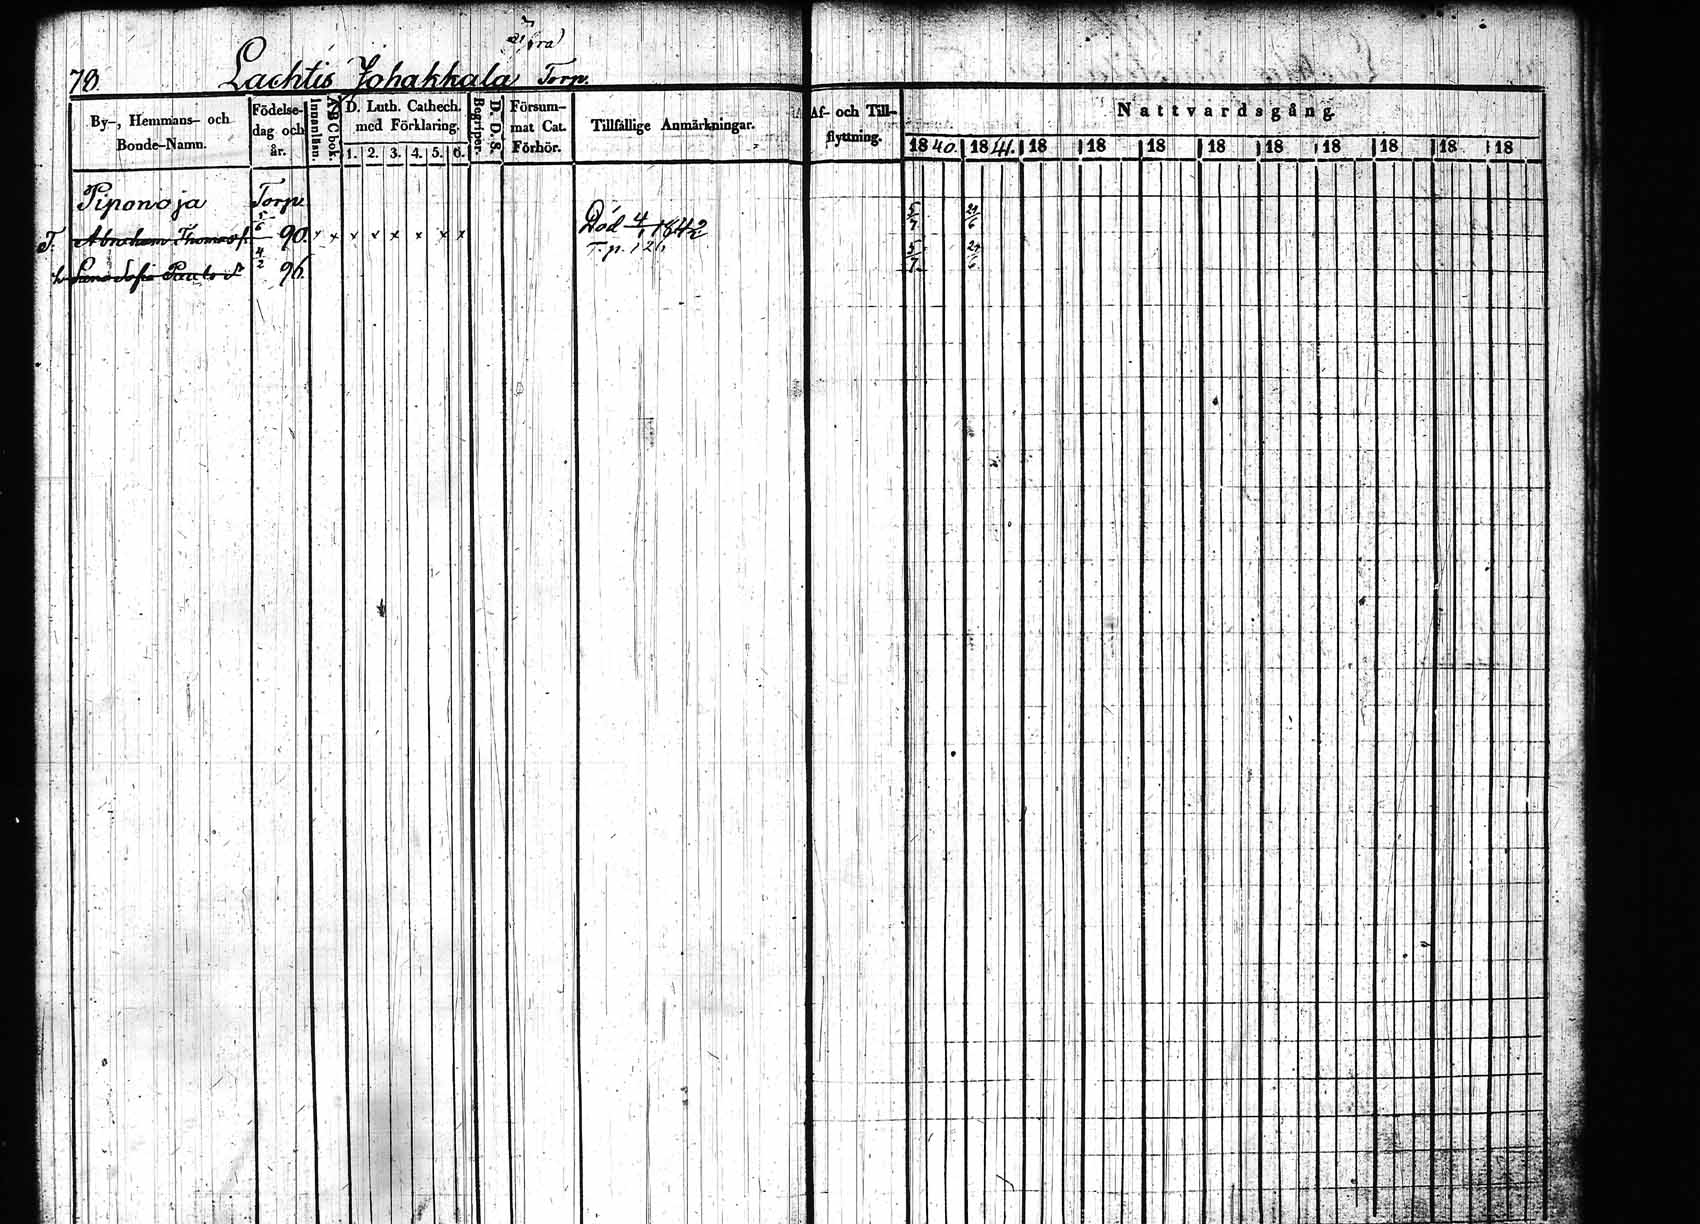 78.
Lachtis Johakkala Torp.
By-, Hemmans- och Bonde-Namn.
Födelse-dag och år.
Innanläsn.
A B C bok.
D. Luth. Cathech. med Förklaring.
1. 2. 3. 4. 5. 6.
Begripor.
D. D. S.
Försum-mat Cat. Förhör.
Tillfällige Anmärkningar.
Af- och Till-flyttning.
Nattvardsgång
1840. 1841. 18 18 18 18 18 18 18 18 18
Piponoja Torp.
T. Abraham Thomasf. 5/6 90. x x x x x x x x Död 4/1 1842 5/7 24/6
h. Lena Sofia Paulsd 4/2 96. T. p. 126 5/7 24/6